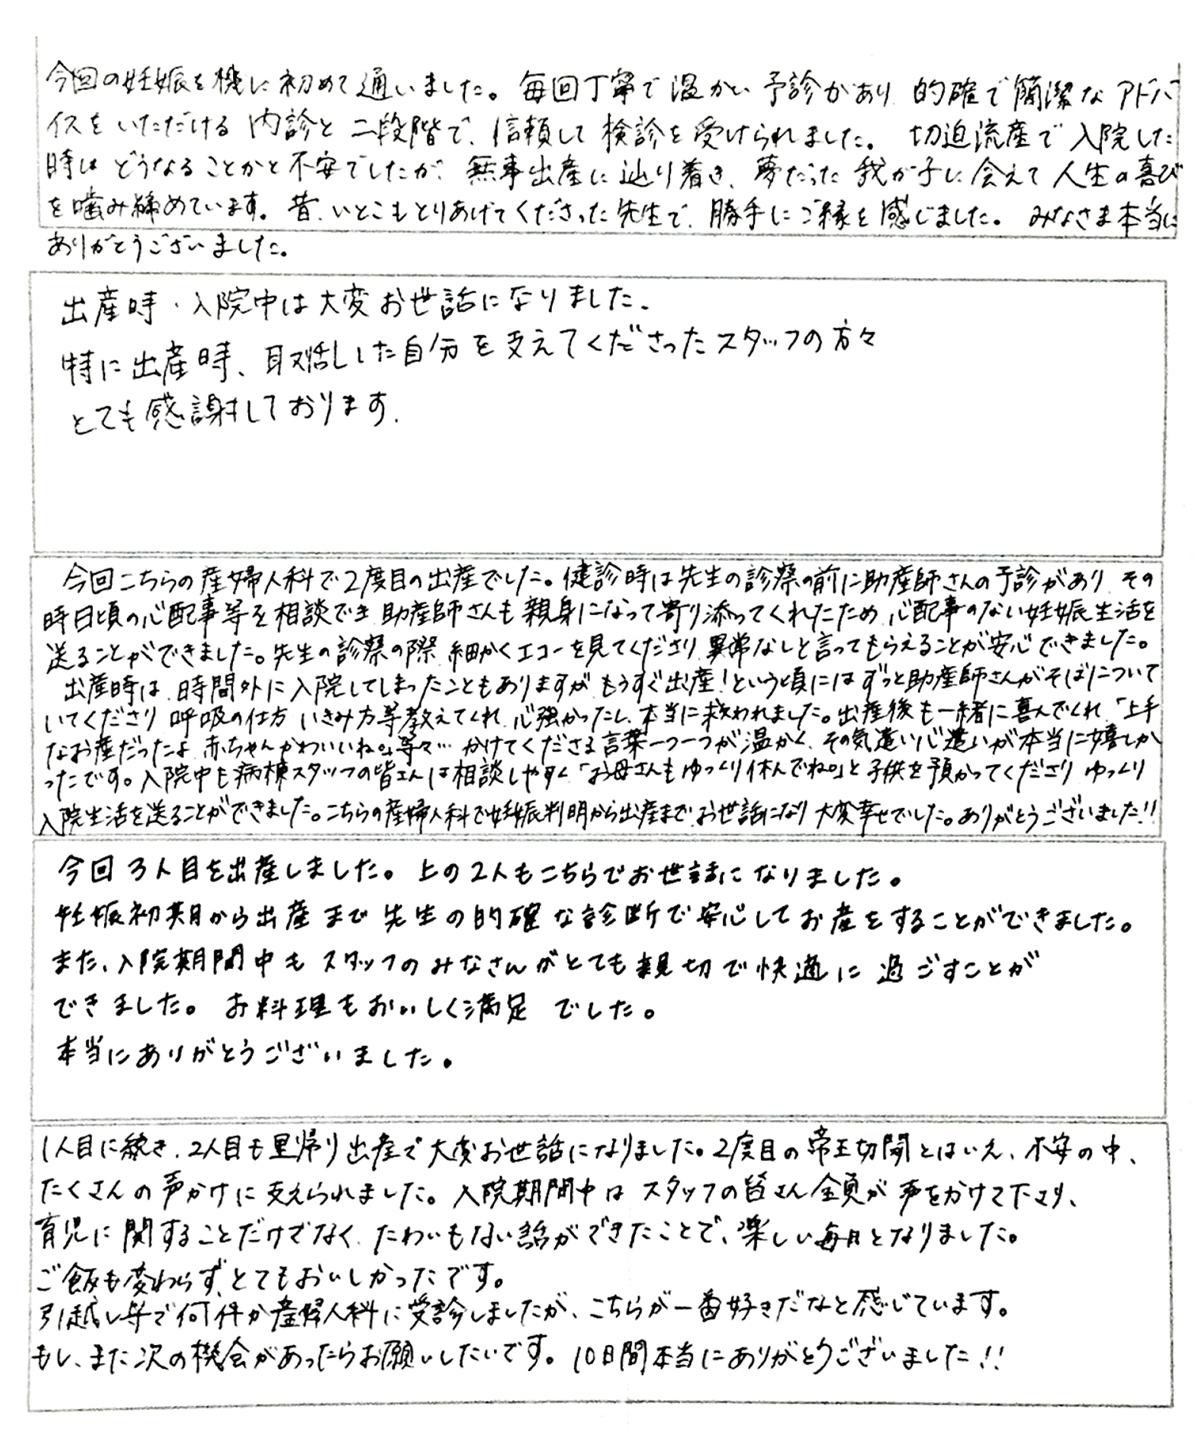 今回の妊娠を機に初めて通いました。毎回丁寧で温かい予診があり 的確で簡潔なアドバ
イスをいただける内診と二段階で、信頼して検診を受けられました。 切迫流産で入院した
時は どうなることかと不安でしたが、無事出産に辿り着き、夢だった我が子に会えて人生の喜び
を噛み締めています。昔、いとこもとりあげてくださった先生で、勝手にご縁を感じました。 みなさま本当に
ありがとうございました。
出産時・入院中は大変お世話になりました.
特に出産時、取乱した自分を支えてくださったスタッフの方々
とても感謝しております.
今回こちらの産婦人科で2度目の出産でした。健診時は先生の診察の前に助産師さんの予診があり その
時日頃の心配事等を相談でき 助産師さんも親身になって寄り添ってくれたため 心配事のない妊娠生活を
送ることができました。先生の診察の際 細かくエコーを見てくださり 異常なしと言ってもらえることが安心できました。
出産時は 時間外に入院してしまったこともありますが もうすぐ出産!という頃にはずっと助産師さんがそばについて
いてくださり 呼吸の仕方 いきみ方等教えてくれ 心強かったし、本当に救われました。出産後も一緒に喜んでくれ「上手
なお産だったよ 赤ちゃんかわいいね。」等々… かけてくださる言葉一つ一つが温かく その気遣い心遣いが本当に嬉しか
ったです。入院中も病棟スタッフの皆さんは相談しやすく「お母さんもゆっくり休んでね。」と子供を預かってくださり ゆっくり
入院生活を送ることができました。こちらの産婦人科で妊娠判明から出産まで お世話になり 大変幸せでした。ありがとうございました!!
今回3人目を出産しました。上の2人もこちらでお世話になりました。
妊娠初期から出産まで先生の的確な診断で安心してお産をすることができました。
また、入院期間中もスタッフのみなさんがとても親切で快適に過ごすことが
できました。お料理もおいしく満足でした。
本当にありがとうございました。
1人目に続き、2人目も里帰り出産で大変お世話になりました。2度目の帝王切開とはいえ、不安の中、
たくさんの声かけに支えられました。入院期間中はスタッフの皆さん全員が声をかけて下さり、
育児に関することだけでなく、たわいもない話ができたことで、楽しい毎日となりました。
ご飯も変わらず、とてもおいしかったです。
引越し等で何件か産婦人科に受診しましたが、こちらが一番好きだなと感じています。
もし、また次の機会があったらお願いしたいです。10日間本当にありがとうございました!!